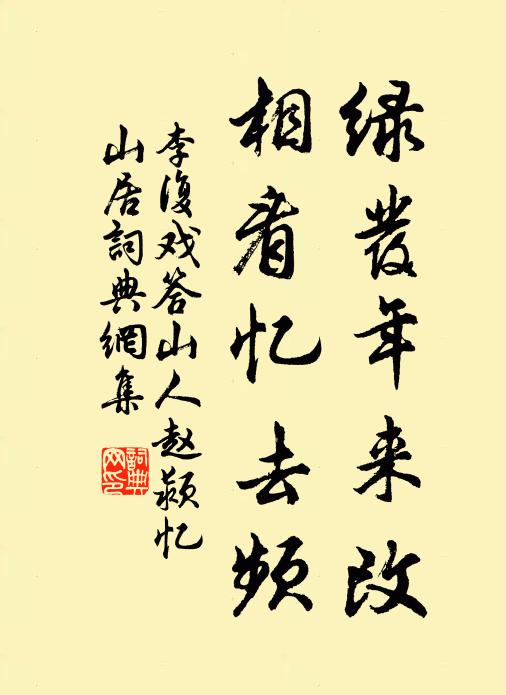 绿发年来改
相看忆去频
李复戏答山人赵蘋忆
山居詞典網集
詞典
网印